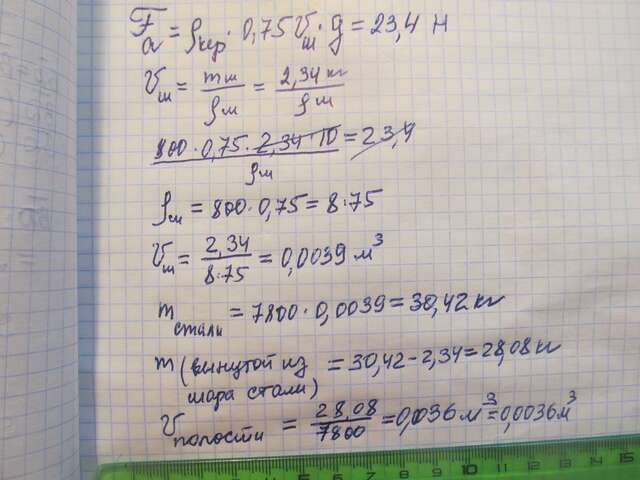 Fa = ρкер · 0,75 Vш · g = 23,4 Н
Vш = mш / ρш = 2,34 кг / ρш
800 · 0,75 · 2,34 · 10 / ρш = 23,4
ρш = 800 · 0,75 = 8·75
Vш = 2,34 / 8·75 = 0,0039 м³
m стали = 7800 · 0,0039 = 30,42 кг
m (вынутой из шара стали) = 30,42 – 2,34 = 28,08 кг
V полости = 28,08 / 7800 = 0,036 м³ = 0,0036 м³
6 7 8 9 10 11 12 13 14 15